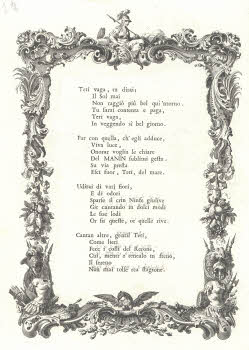 Teti vaga, tu
Il Sol mai
Non raggiò più bel qu'ntorno.
Tu farai contenta e paga,
Teti vaga,
In veggendo sì bel giorno.
Pur con quella, ch'egli adduce,
Viva luce,
Onorar voglia le chiare
Del MANIN sublimi gesta.
Su via presta
Esci fuor, Teti, dal mare.
Uditai di vari fiori,
E di odori
Sparse il crin Ninfe giulive
Gir cantando in dolci modi
Le sue lodi
Or su queste, or quelle rive.
Cantan altre, gentil Teti,
Come lieti
Fece i colli del
Così, mentr' è
Il sereno
Non mai tolse